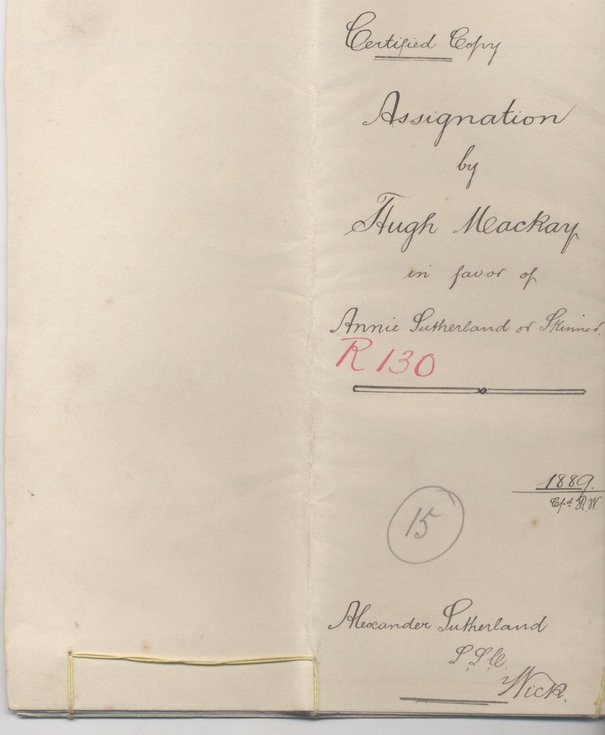 Certified Copy
Assignation
by
Hugh Mackay
in favor of
Annie Sutherland or Skinner.
R 130
1889.
Cpd R.W.
15
Alexander Sutherland
S.S.C.
Wick.